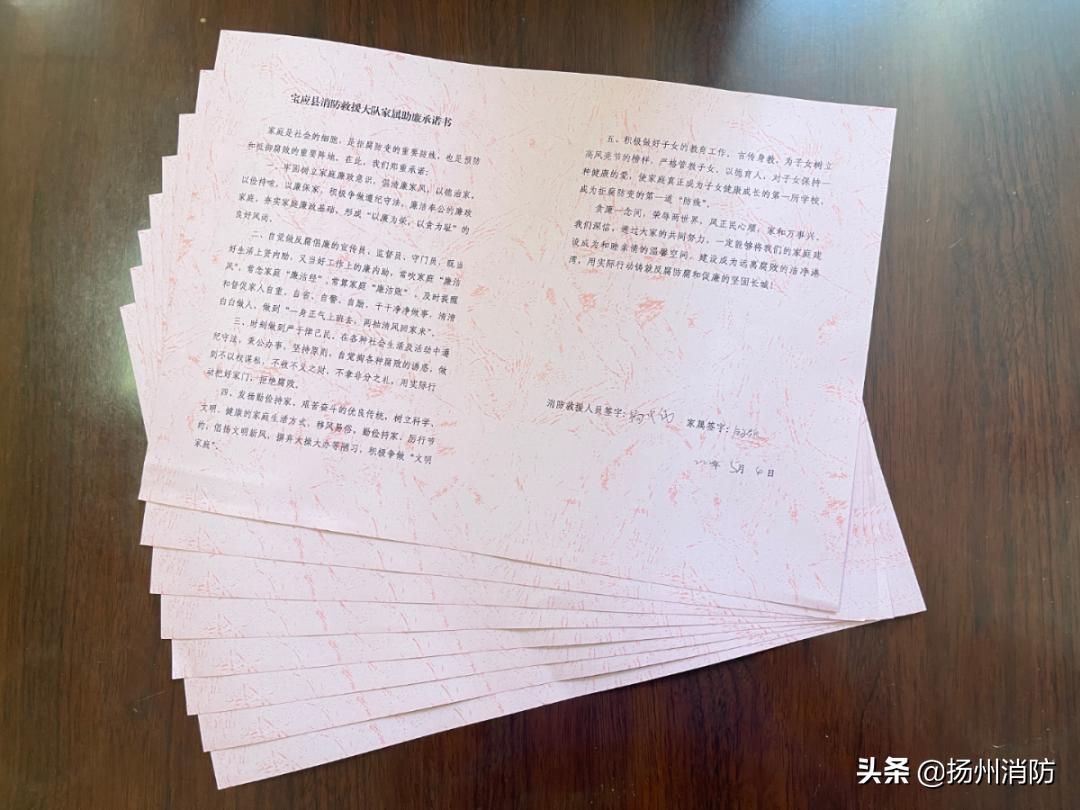 宝应县消防救援大队家属助廉承诺书
家庭是社会的细胞，是拒腐防变的重要防线，也是预防
和抵御腐败的重要阵地。在此，我们郑重承诺：
一、牢固树立家庭廉政意识，倡清廉家风，以德治家，
以俭持家，以廉保家，积极争做遵纪守法、廉洁奉公的廉政
家庭，夯实家庭廉政基础，形成“以廉为荣，以贪为耻”的
良好风尚。
二、自觉做反腐倡廉的宣传员、监督员、守门员，既当
好生活上贤内助，又当好工作上的廉内助，常吹家庭“廉洁
风”，常念家庭“廉洁经”，常算家庭“廉洁账”，及时提醒
和督促家人自重、自省、自警、自励，干干净净做事，清清
白白做人，做到“一身正气上班去，两袖清风回家来”。
三、时刻做到严于律己民，在各种社会生活及活动中遵
纪守法，秉公办事，坚持原则，自觉抵各种腐败的诱惑，做
到不以权谋私，不收不义之财，不拿非分之礼，用实际行
动把好家门，拒绝腐败。
四、发扬勤俭持家、艰苦奋斗的优良传统，树立科学、
文明、健康的家庭生活方式，移风易俗，勤俭持家，厉行节
约，倡扬文明新风，摒弃大操大办等陋习，积极争做“文明
家庭”。
五、积极做好子女的教育工作，言传身教，为子女树立
高风亮节的榜样，严格管教子女，以德育人，对子女保持一
种健康的爱，使家庭真正成为子女健康成长的第一所学校，
成为拒腐防变的第一道“防线”。
贪廉一念间，荣辱两世界，风正民心顺，家和万事兴，
我们深信，通过大家的共同努力，一定能够将我们的家庭建
设成为和睦亲情的温馨空间，建设成为远离腐败的洁净港
湾，用实际行动铸就反腐防腐和促廉的坚固长城！
消防救援人员签字： 家属签字：
年 5月 6日
头条 @扬州消防